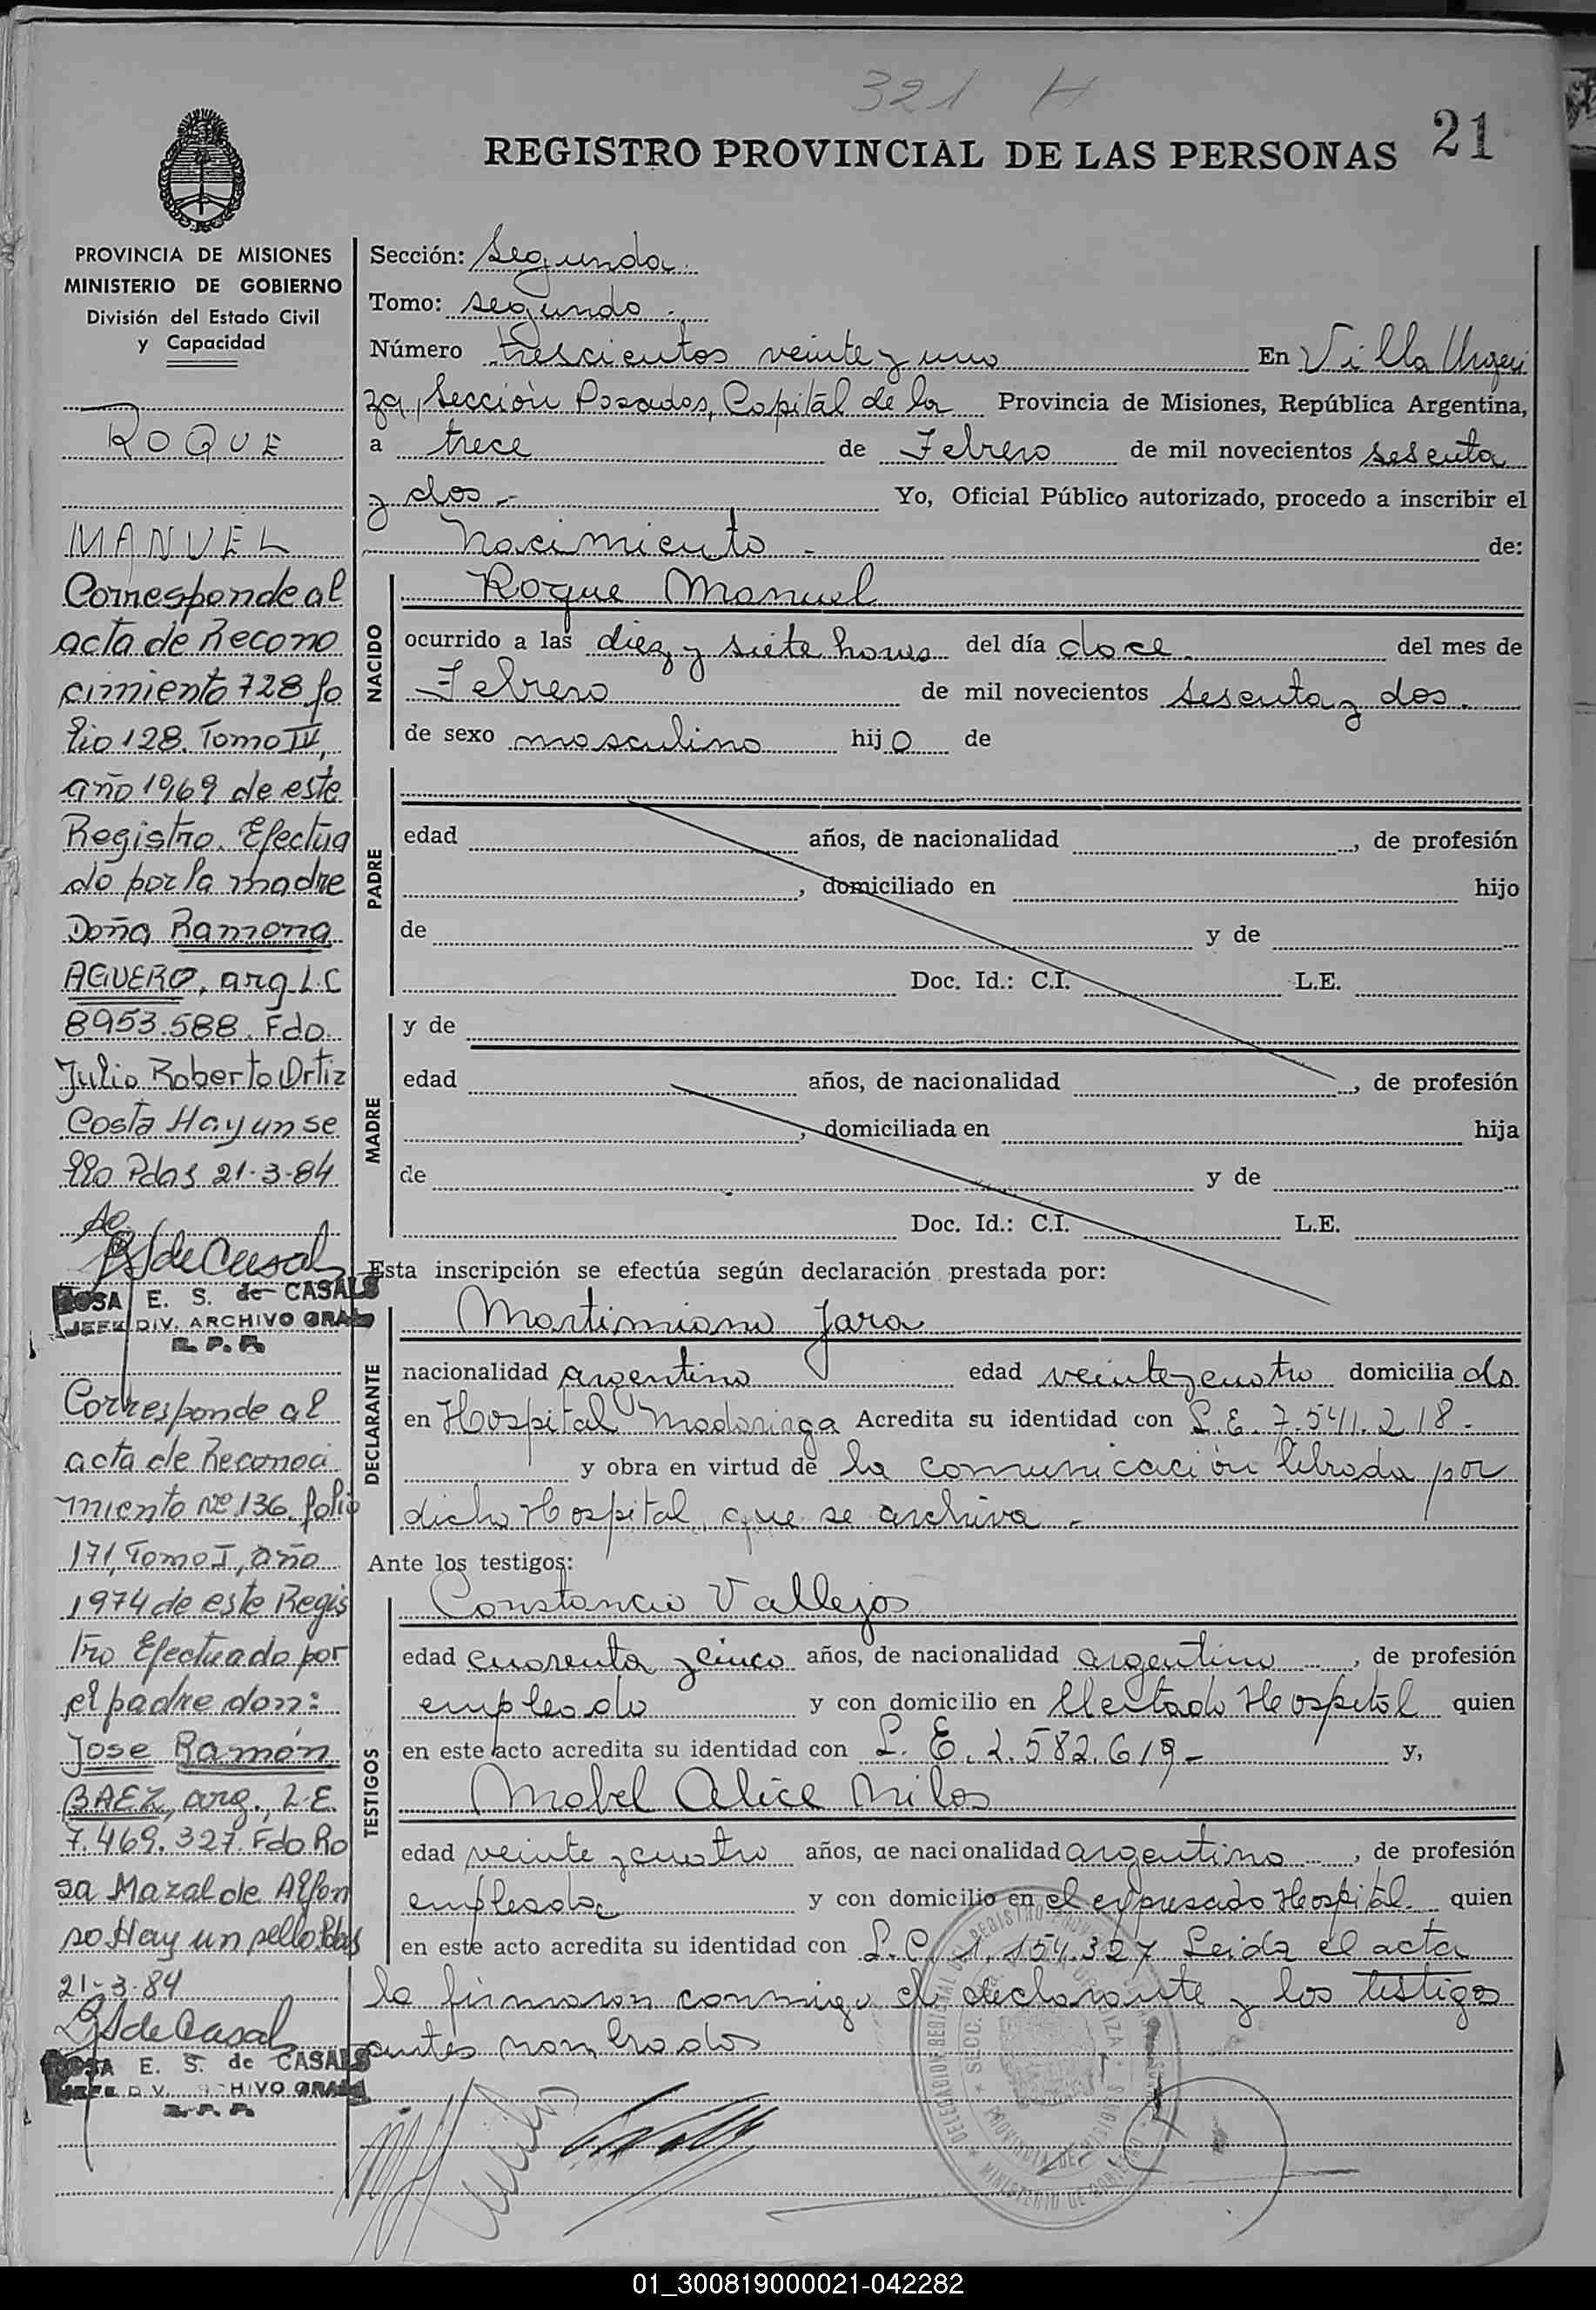 321 H
REGISTRO PROVINCIAL DE LAS PERSONAS 21
PROVINCIA DE MISIONES
MINISTERIO DE GOBIERNO
División del Estado Civil
y Capacidad
ROQUE
MANUEL
Corresponde al
acta de Recono
cimiento 728 fo
lio 128. Tomo IV,
año 1969 de este
Registro. Efectua
do por la madre
Doña Ramona
AGUERO, arg L.C
8953.588. Fdo.
Julio Roberto Ortiz
Costa Hay un se
llo Pdas 21-3-84
ROSA E. S. de CASALS
JEFE DIV. ARCHIVO GRAL
R. P. P.
Corresponde al
acta de Reconoci
miento Nº 136. folio
171, Tomo I, año
1974 de este Regis
tro Efectuado por
el padre don:
Jose Ramón
BAEZ, arg., L.E.
7.469.327. Fdo Ro
sa Mazal de Alfon
so Hay un sello Pdas
21-3-84
ROSA E. S. de CASALS
JEFE DIV. ARCHIVO GRAL
R. P. P.
Sección: Segunda.
Tomo: segundo.-
Número trescientos veinte y uno En Villa Urqui
za, Sección Posadas, Capital de la Provincia de Misiones, República Argentina,
a trece de Febrero de mil novecientos sesenta
y dos.- Yo, Oficial Público autorizado, procedo a inscribir el
Nacimiento - de:
NACIDO
Roque Manuel
ocurrido a las diez y siete horas del día doce del mes de
Febrero de mil novecientos sesenta y dos.
de sexo masculino hijo de
PADRE
edad años, de nacionalidad , de profesión
, domiciliado en hijo
de y de
Doc. Id.: C.I. L.E.
MADRE
y de
edad años, de nacionalidad , de profesión
, domiciliada en hija
de y de
Doc. Id.: C.I. L.E.
Esta inscripción se efectúa según declaración prestada por:
DECLARANTE
Martimiano Jara
nacionalidad argentino edad veinte y cuatro domiciliado
en Hospital Madariaga Acredita su identidad con L.E. 7.541.218.-
y obra en virtud de la comunicación librada por
dicho Hospital, que se archiva.-
Ante los testigos:
TESTIGOS
Constancio Vallejos
edad cuarenta y cinco años, de nacionalidad argentino , de profesión
empleado y con domicilio en el citado Hospital quien
en este acto acredita su identidad con L.E. 2.582.619- y,
Mabel Alice Milos
edad veinte y cuatro años, de nacionalidad argentina , de profesión
empleada y con domicilio en el expresado Hospital. quien
en este acto acredita su identidad con L.C. 1.154.327 Leida el acta
la firmaron conmigo el declarante y los testigos
antes nombrados
DELEGACION REGIONAL DEL REGISTRO PROV
SECC. URQUIZA
PROVINCIA DE MISIONES
MINISTERIO DE GOBIERNO
01_300819000021-042282